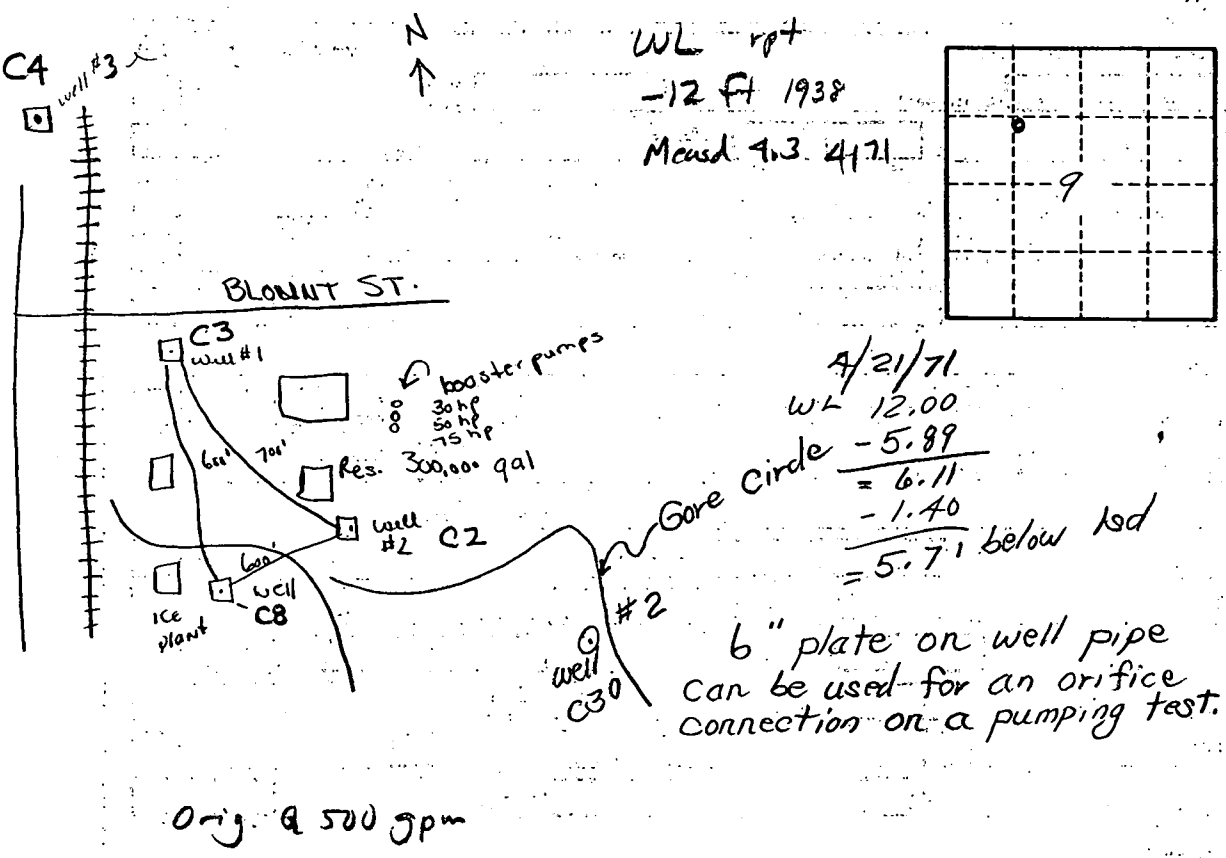 C4
well #3
N
WL rpt
-12 ft 1938
Measd 4.3 4/71
9
BLOUNT ST.
C3
well #1
booster pumps
30 hp
50 hp
75 hp
600' 700'
Res. 300,000 gal
well
#2 C2
600'
well
C8
ICE
plant
Gore Circle
#2
well
C30
4/21/71
WL 12.00
- 5.89
= 6.11
- 1.40
= 5.71 below lsd
6" plate on well pipe
can be used for an orifice
connection on a pumping test.
Orig. Q 500 gpm